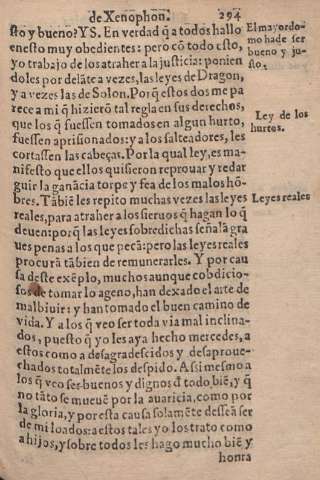 de Xenophon. 294
sto y bueno? YS. En verdad q̃ a todos hallo
en esto muy obedientes: pero cõ todo esto,
yo trabajo de los atraher a la justicia: ponien
doles por delãte a vezes, las leyes de Dragon,
y a vezes las de Solon. Porq̃ estos dos me pa
rece a mi q̃ hizierõ tal regla en sus derechos,
que los q̃ fuessen tomados en algun hurto,
fuessen aprisionados: y a los salteadores, les
cortassen las cabeças. Por la qual ley, es ma-
nifesto que ellos quisieron reprouar y redar
guir la ganãcia torpe y fea de los malos hõ-
bres. Tãbiẽ les repito muchas vezes las leyes
reales, para atraher a los sieruos q̃ hagan lo q̃
deuen: porq̃ las leyes sobredichas señalã gra
ues penas a los que pecã: pero las leyes reales
procurã tãbien de remunerarles. Y por cau
sa deste exẽplo, muchos aunque cobdicio-
sos de tomar lo ageno, han dexado el arte de
malbiuir: y han tomado el buen camino de
vida. Y a los q̃ veo ser toda via mal inclina-
dos, puesto q̃ yo les aya hecho mercedes, a
estos como a desagradescidos y desaproue-
chados totalmẽte los despido. Assi mesmo a
los q̃ veo ser buenos y dignos đ todo biẽ, y q̃
no tãto se mueuẽ por la auaricia, como por
la gloria, y por esta causa solamẽte desseã ser
de mi loados: a estos tales yo los trato como
a hijos, y sobre todos les hago mucho biẽ y
honra
El mayordo-
mo hade ser
bueno y ju-
sto.
Ley de los
hurtos.
Leyes reales